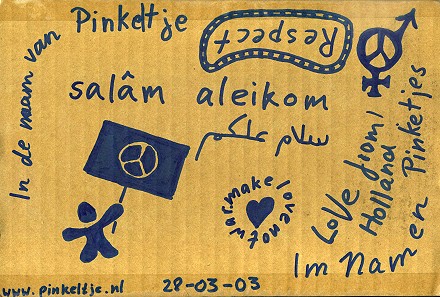 In de naam van Pinkeltje
Respect
salâm aleikom
سلام عليكم
make love not war.
Love from/
Holland
Im Namen Pinkeltjes
www.pinkeltje.nl
28-03-03